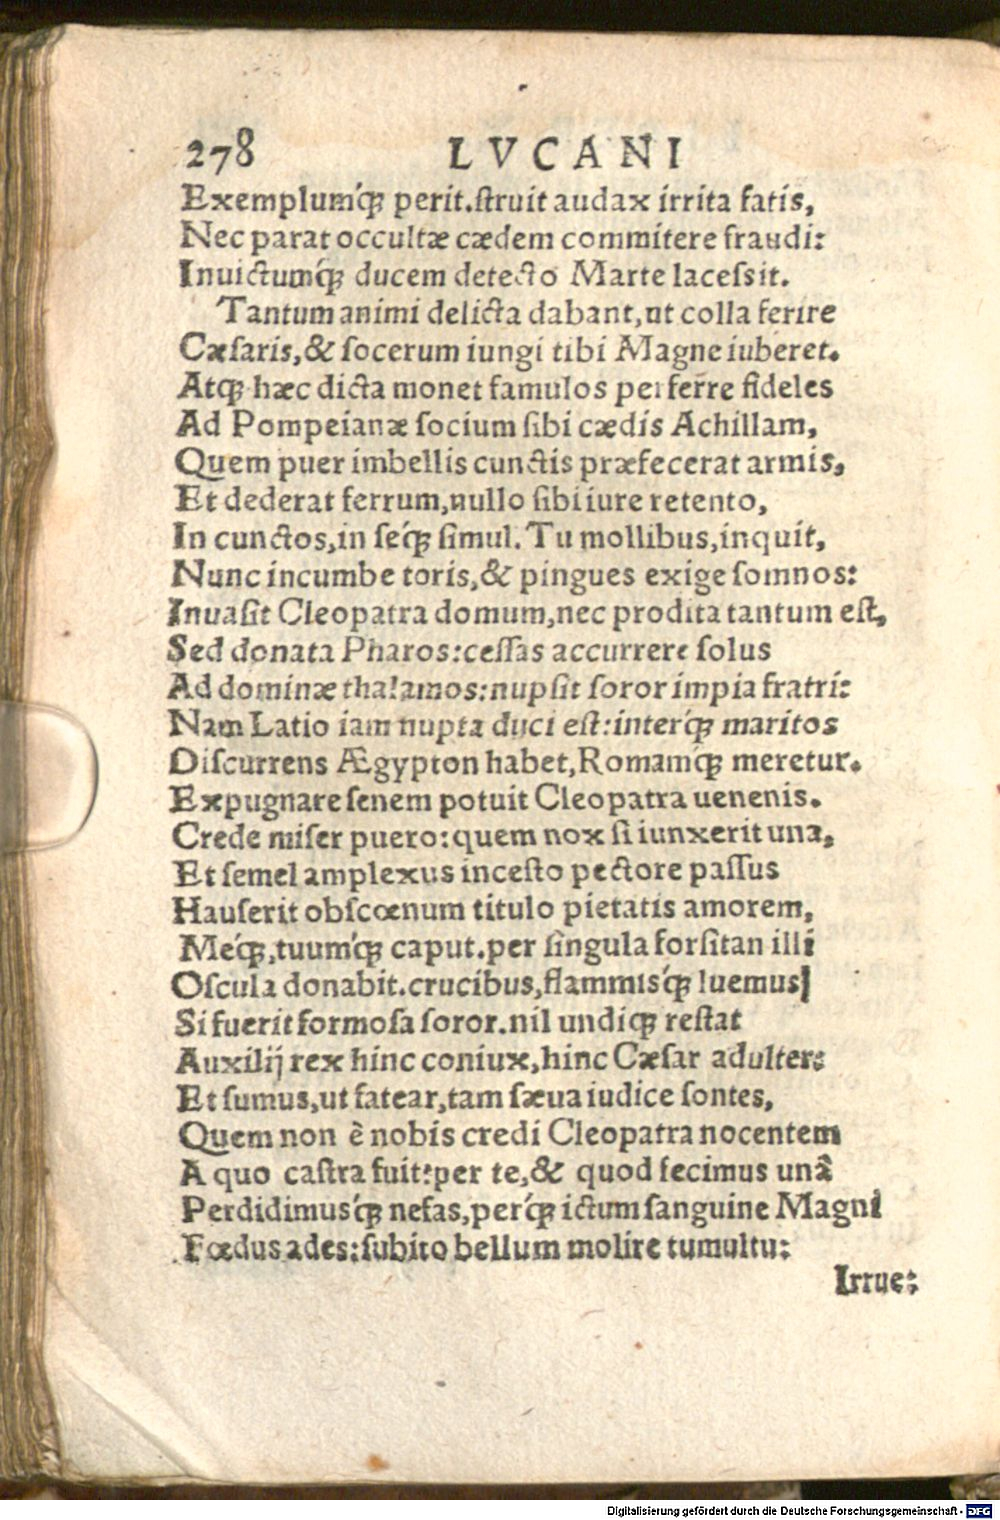 278 LVCANI
Exemplumq́ꝫ perit.struit audax irrita fatis,
Nec parat occultæ cædem commitere fraudi:
Inuictumq́ꝫ ducem detecto Marte lacessit.
Tantum animi delicta dabant,ut colla ferire
Cæsaris,& socerum iungi tibi Magne iuberet.
Atqꝫ hæc dicta monet famulos perferre fideles
Ad Pompeianæ socium sibi cædis Achillam,
Quem puer imbellis cunctis præfecerat armis,
Et dederat ferrum,nullo sibi iure retento,
In cunctos,in seq́ꝫ simul. Tu mollibus,inquit,
Nunc incumbe toris,& pingues exige somnos:
Inuasit Cleopatra domum,nec prodita tantum est,
Sed donata Pharos:cessas accurrere solus
Ad dominæ thalamos:nupsit soror impia fratri:
Nam Latio iam nupta duci est:interq́ꝫ maritos
Discurrens Ægypton habet,Romamqꝫ meretur.
Expugnare senem potuit Cleopatra uenenis.
Crede miser puero:quem nox si iunxerit una,
Et semel amplexus incesto pectore passus
Hauserit obscœnum titulo pietatis amorem,
Meq́ꝫ,tuumq́ꝫ caput.per singula forsitan illi
Oscula donabit.crucibus,flammisq́ꝫ luemus
Si fuerit formosa soror.nil undiqꝫ restat
Auxilij rex hinc coniux,hinc Cæsar adulter:
Et sumus,ut fatear,tam sæua iudice sontes,
Quem non è nobis credi Cleopatra nocentem
A quo castra fuit:per te,& quod fecimus unâ
Perdidimusq́ꝫ nefas,perq́ꝫ ictum sanguine Magni
Fœdus ades:subito bellum molire tumultu:
Irrue:
Digitalisierung gefördert durch die Deutsche Forschungsgemeinschaft - DFG